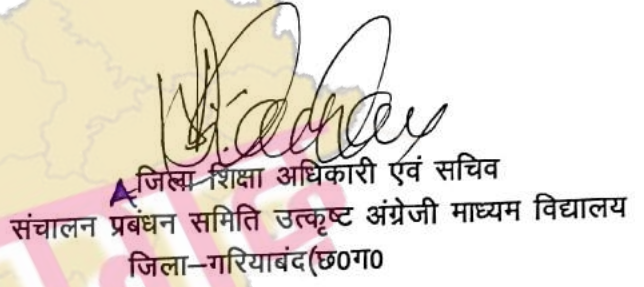 जिला शिक्षा अधिकारी एवं सचिव
संचालन प्रबंधन समिति उत्कृष्ट अंग्रेजी माध्यम विद्यालय
जिला–गरियाबंद(छ0ग0